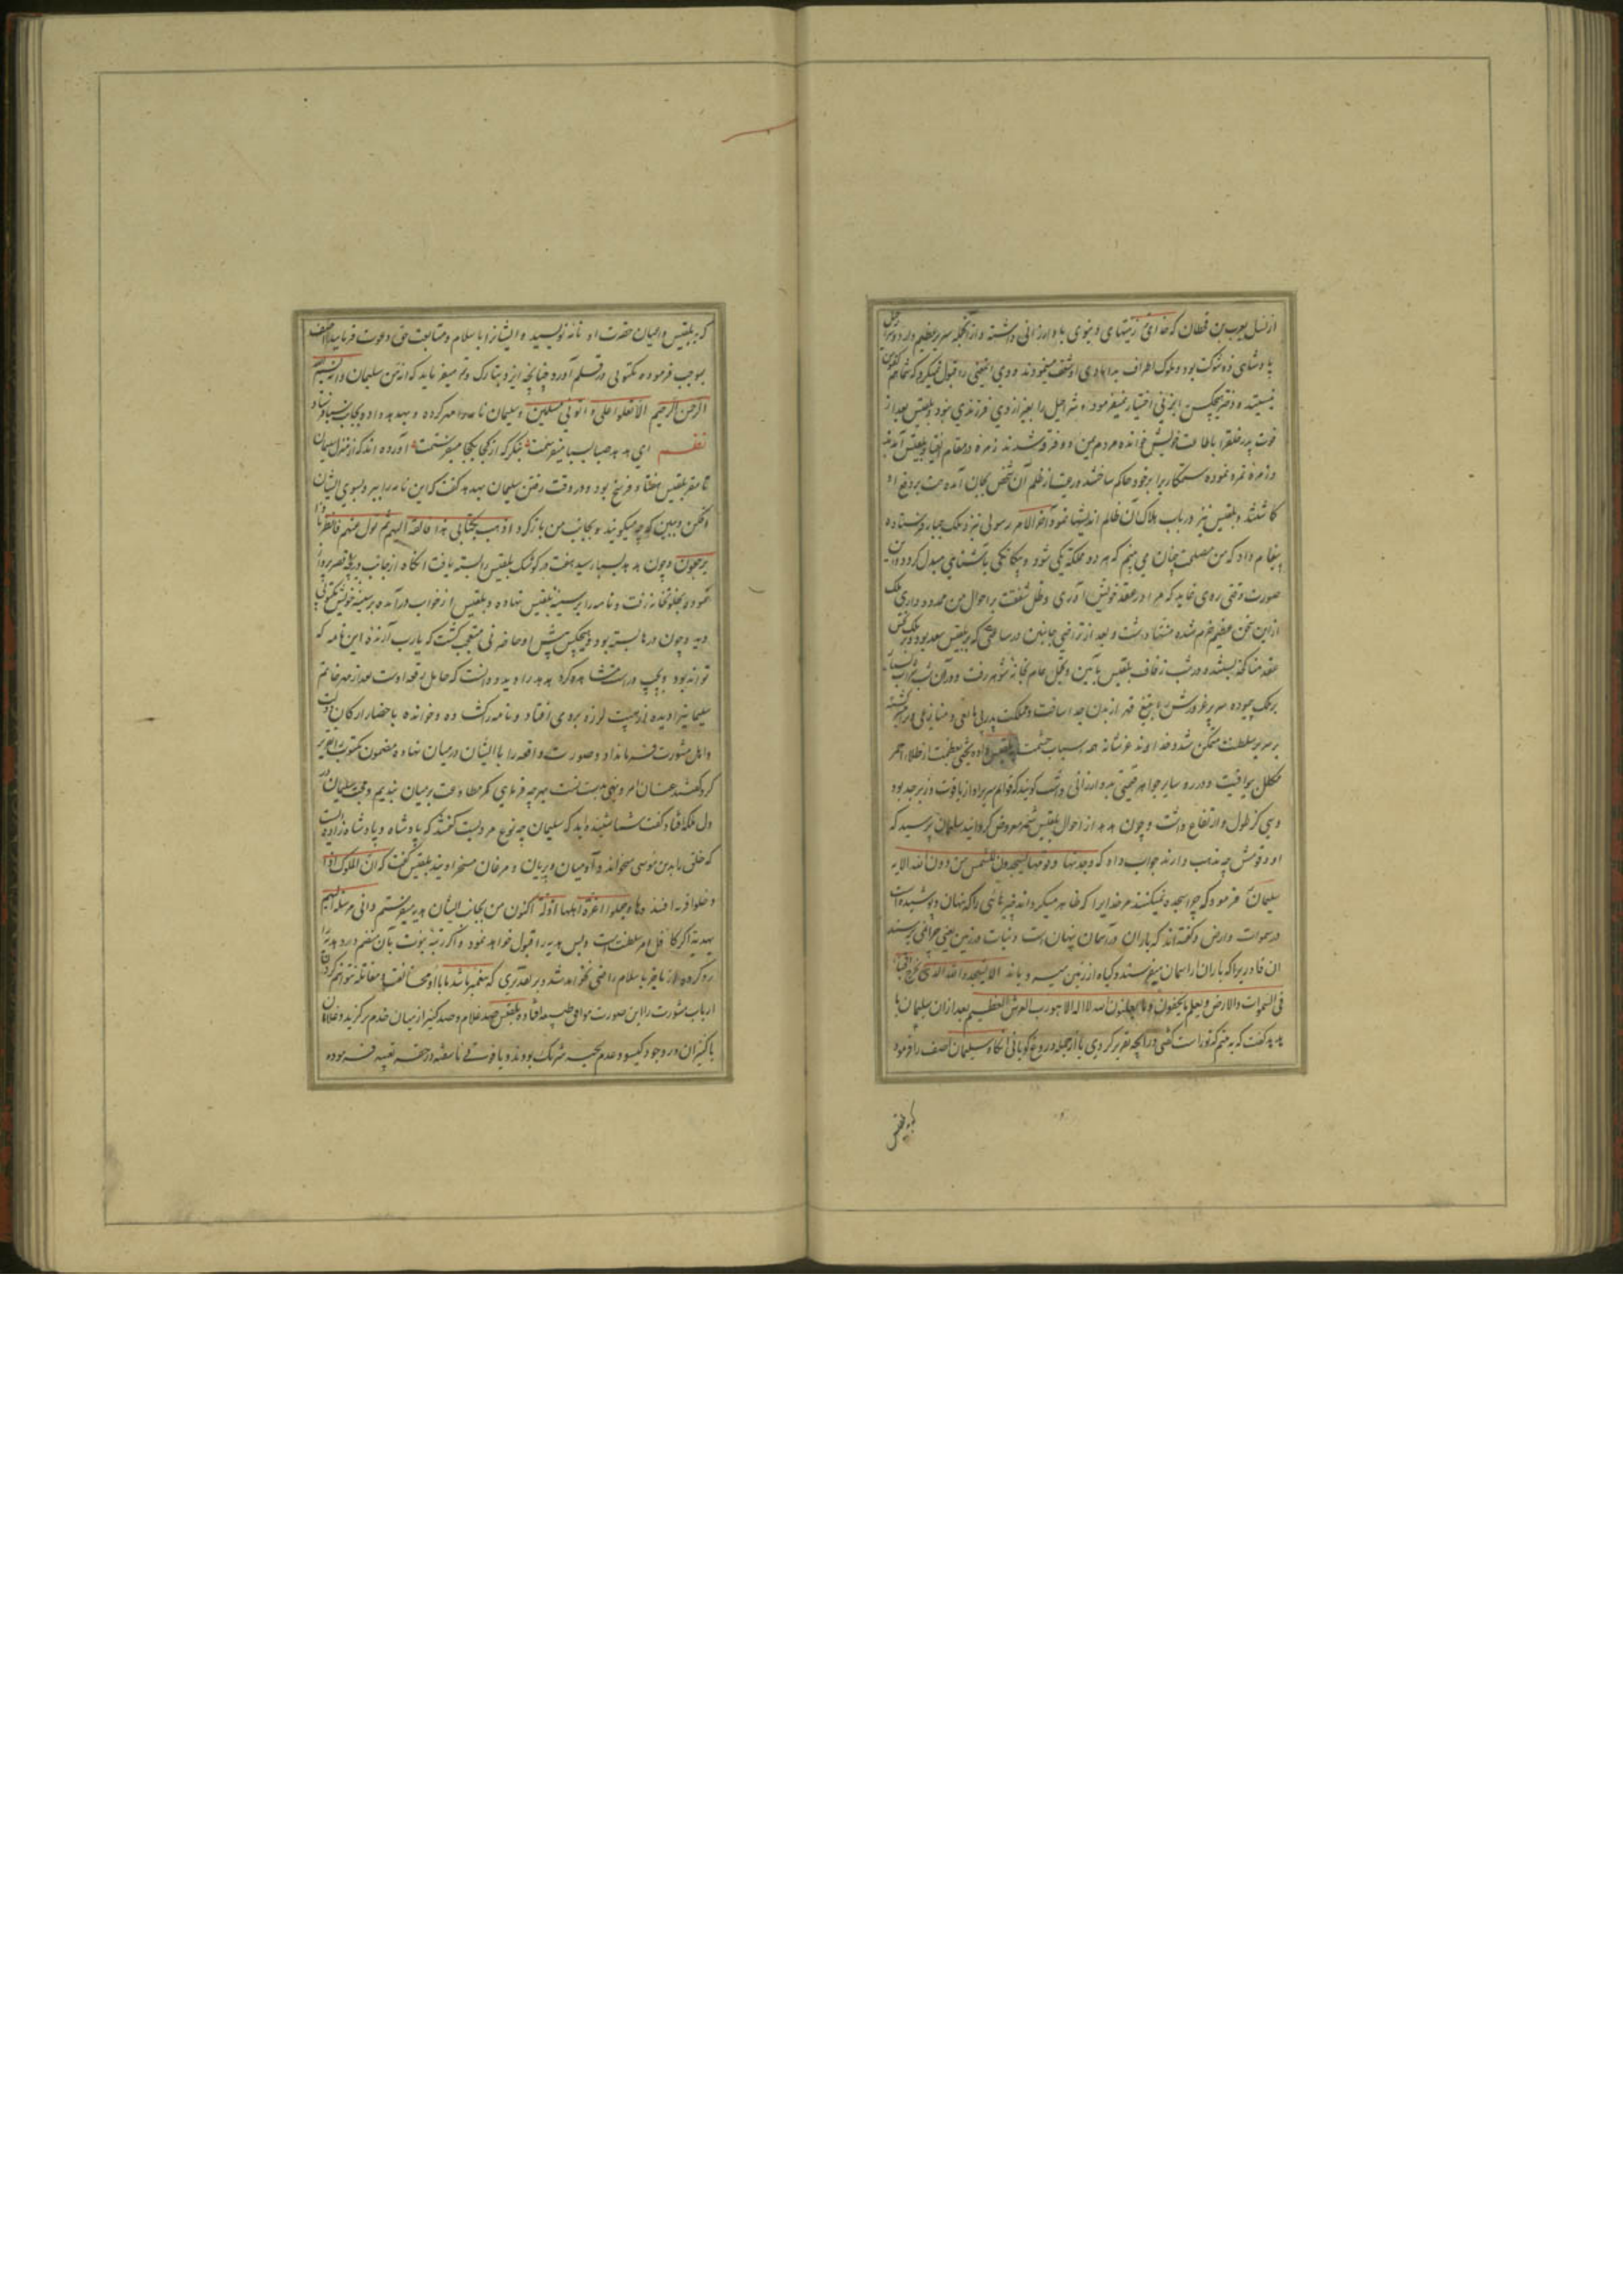 از نسل یعرب بن قحطان که خدای زینتهای دنیوی باو ارزانی داشته و از آنجمله سریر عظیم دارد و شراحیل
پادشاهی ذو شوکت بود و ملوک اطراف
نیستید و دختر هیچکس را بزنی اختیار نمیفرمود و شراحیل را بغیر از وی فرزندی نبود و بلقیس بعد از
فوت پدر خلق را باطاعت خویش خوانده مردم یمن دو فرقه شدند زمره در مقام انقیاد بلقیس آمدند
و زمره تمرد نموده ستمکاریرا بر خود حاکم ساختند و رعیت از ظلم آن شخص بجان آمده همت بر دفع او
کماشتند و بلقیس نیز در باب هلاک آن ظالم اندیشها نمود آخر الامر رسولی نزد ملک جبار فرستاده
پیغام داد که من مصلحت چنان می بینم که هر دو مملکة یکی شود و بیکانکی بآشنایی مبدل کردد و این
صورت وقتی روی نماید که مرا در عقد خویش آوری و ظل شفقت بر احوال من ممدود داری ملک
ازین سخن عظیم خرم شده منتها داشت و بعد از تراضی جانبین در ساعتی که بر بلقیس سعد بود و بر ملک نحس
عقد مناکحة بستند و در شب زفاف بلقیس بآیین و تجمل تمام بخانه شوهر رفت و در آن شب شراب بسیار
بر ملک پیموده سر پر غرورش را بتیغ قهر از بدن جدا ساخت و مملکت پدر بی مانعی و منازعی
بر سریر سلطنت متمکن شد و خداوند عز شانه همه اسباب حشمت بلقیس داده تختی بعظمت از طلاء احمر
مکلل بیواقیت و درر و سایر جواهر قیمتی بدو ارزانی داشت کویند که قوایم سریر او از یاقوت و زبرجد بود
و سی کز طول و ارتفاع داشت و چون هدهد از احوال بلقیس شمه معروض کردانید سلیمان پرسید که
او و قومش چه مذهب دارند جواب داد که وجدتها و قومها یسجدون للشمس من دون الله الایه
سلیمان فرمود که چرا سجده نمیکنند مر خدایرا که ظاهر میکرداند چیزهائی را که پنهان و پوشیده است
در سموات و ارض و کفته اند که باران در آسمان پنهان است و نبات در زمین یعنی چرا نمی پرستند
آن قادریرا که باران از آسمان میفرستد و کیاه از زمین میرویاند الا یسجدوا لله الذی یخرج الخبأ
فی السموات والارض و یعلم ما یخفون و ما یعلنون الله لا اله الا هو رب العرش العظیم بعد از آن سلیمان با
هدهد کفت که ببینم که تو راست کفتی در آنچه تقریر کردی یا از جمله دروغ کویانی آنکاه سلیمان آصف را فرمود
که بلقیس
که بر بلقیس و اعیان حضرت او نامه نویسد و ایشانرا باسلام و متابعت حق دعوت فرماید آصف
بموجب فرموده مکتوبی در قلم آورد چنانچه ایزد تبارک و تع میفرماید که انه من سلیمان و انه بسم الله
الرحمن الرحیم الا تعلوا علی و اتونی مسلمین و سلیمان نامه را مهر کرده و بهدهد داده بجانب سبا فرستاد
نظم ای هدهد صبا بسبا میفرستمت بنکر که از کجا بکجا میفرستمت آورده اند که از منزل سلیمان
تا مقر بلقیس هفتاد فرسخ بود و در وقت رفتن سلیمان بهدهد کفت که این نامه را ببر و بسوی ایشان
افکن و ببین که چه میکویند و بجانب من باز کرد اذهب بکتابی هذا فالقه الیهم ثم تول عنهم فانظر ماذا
یرجعون و چون هدهد بسبا رسید هفت در کوشک بلقیس را بسته یافت آنکاه از جانب دریچه قصر پرواز
نموده بخلوتخانه رفت و نامه را بر سینه بلقیس نهاده و بلقیس از خواب درآمده بر سینه خویش مکتوبی
دید و چون درها بسته بود و هیچکس پیش او حاضر نی متعجب کشت که یارب آرنده این نامه که
تواند بود و بچپ و راست مشاهده کرد هدهد را دید و دانست که حامل رقعه اوست بعد از مهر خاتم
سلیمانیرا دیده از هیبت لرزه بر وی افتاد و نامه را کشاده و خوانده باحضار ارکان دولت
و اهل مشورت فرمان داد و صورت واقعه را با ایشان در میان نهاده مضمون مکتوب تقریر
کرد کفتند عنان امر و نهی بدست تست بهر چه فرمایی کمر مطاوعت بر میان بندیم و محبت سلیمان در
دل ملکه افتاد کفت شما شنیده اید که سلیمان چه نوع مردیست کفتند که پادشاه و پادشاه زاده است
که خلق را بدین موسی میخواند و آدمیان و پریان و مرغان مسخر اویند بلقیس کفت که ان الملوک اذا
دخلوا قریة افسدوها و جعلوا اعزة اهلها اذلة اکنون من بجانب ایشان هدیه میفرستم و انی مرسلة الیهم
بهدیة اکر کافل امر سلطنت است و بس هدیه را قبول خواهد نمود و اکر رتبه نبوت بآن منضم دارد هدیه را
رد کرده از ما جز باسلام راضی نخواهد شد و بر تقدیری که پیغمبر باشد ما با او مخالفت و مقاتله نتوانیم کرد
ارباب مشورت را این صورت موافق طبع افتاده بلقیس صد غلام و صد کنیز از میان خدم بر کزید و غلامان
با کنیزان در وجود کیسو و عدم لحیه شریک بودند و یاقوتی ناسفته در حقه تعبیه فرموده